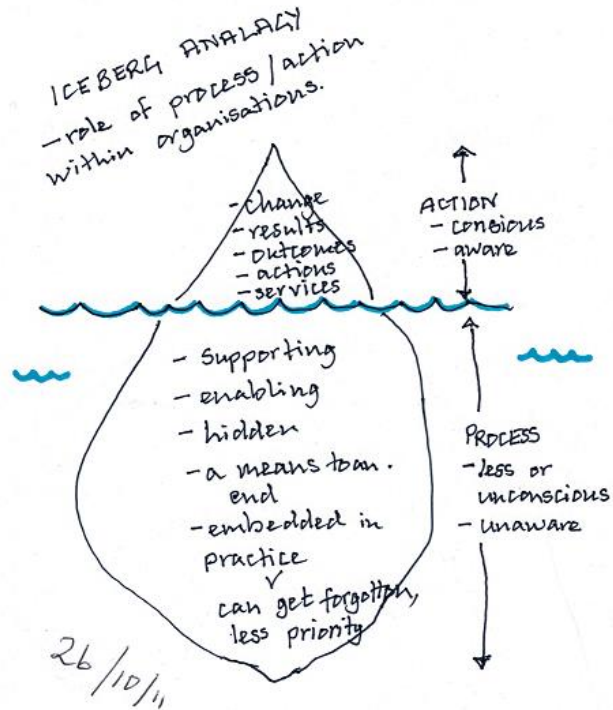 ICEBERG ANALAGY
- role of process/action
within organisations.
- change
- results
- outcomes
- actions
- services
ACTION
- consious
- aware
- supporting
- enabling
- hidden
- a means to an.
end
- embedded in
practice
can get forgotten,
less priority
PROCESS
- less or
unconscious
- unaware
26/10/11